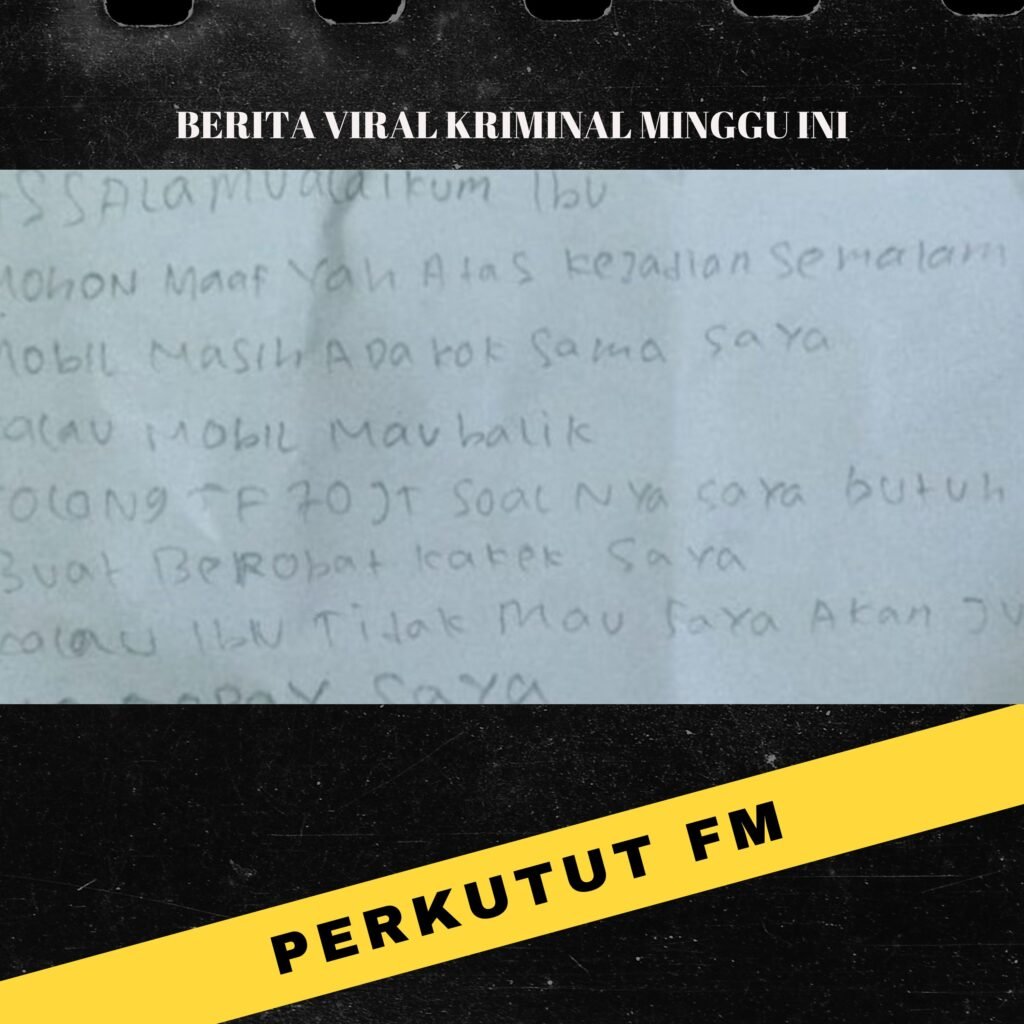 BERITA VIRAL KRIMINAL MINGGU INI
SSALAMUALAIKUM IBU
MOHON MAAF YAH ATAS KEJADIAN SEMALAM
MOBIL MASIH ADA KOK SAMA SAYA
KALAU MOBIL MAU BALIK
TOLONG TF 70 JT SOALNYA SAYA BUTUH
BUAT BEROBAT KAKEK SAYA
KALAU IBU TIDAK MAU SAYA AKAN JU
SAYA
PERKUTUT FM